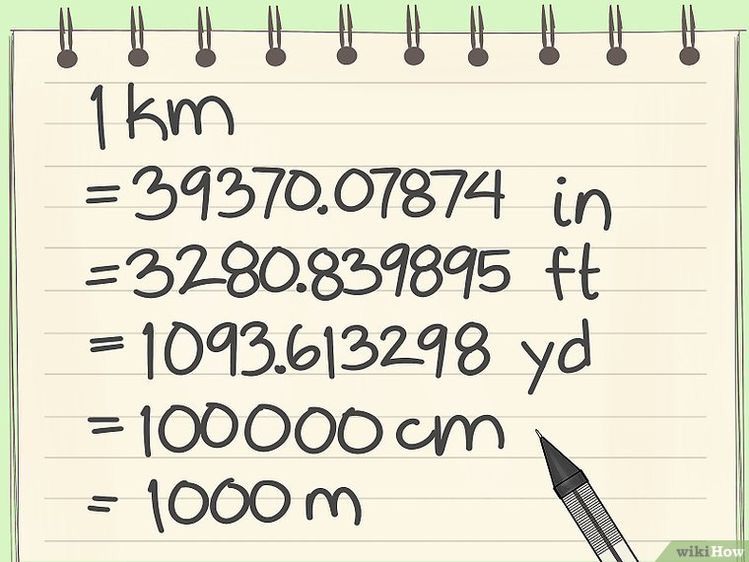 1 km
= 39370.07874 in
= 3280.839895 ft
= 1093.613298 yd
= 100000 cm
= 1000 m
wikiHow